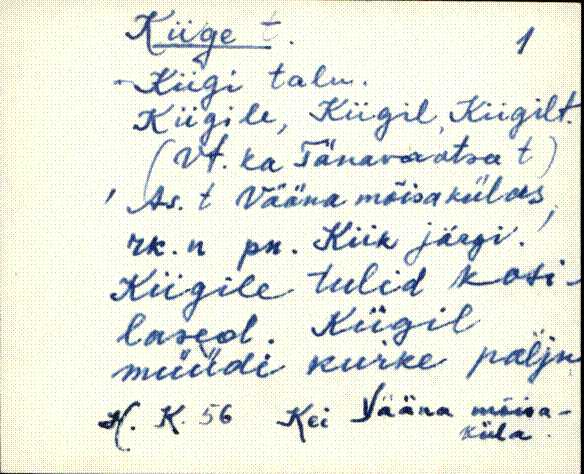 Kiige t.
1
Kiigi talu.
Kiigile, Kiigil, Kiigilt.
(Vt. ka Tänavaotsa t)
As. t Vääna mõisakülas,
rk. n pn. Kiik järgi.
Kiigile tulid kosi-
lased. Kiigil
müüdi kurke palju
H. K. 56 Kei Vääna mõisa-
küla.